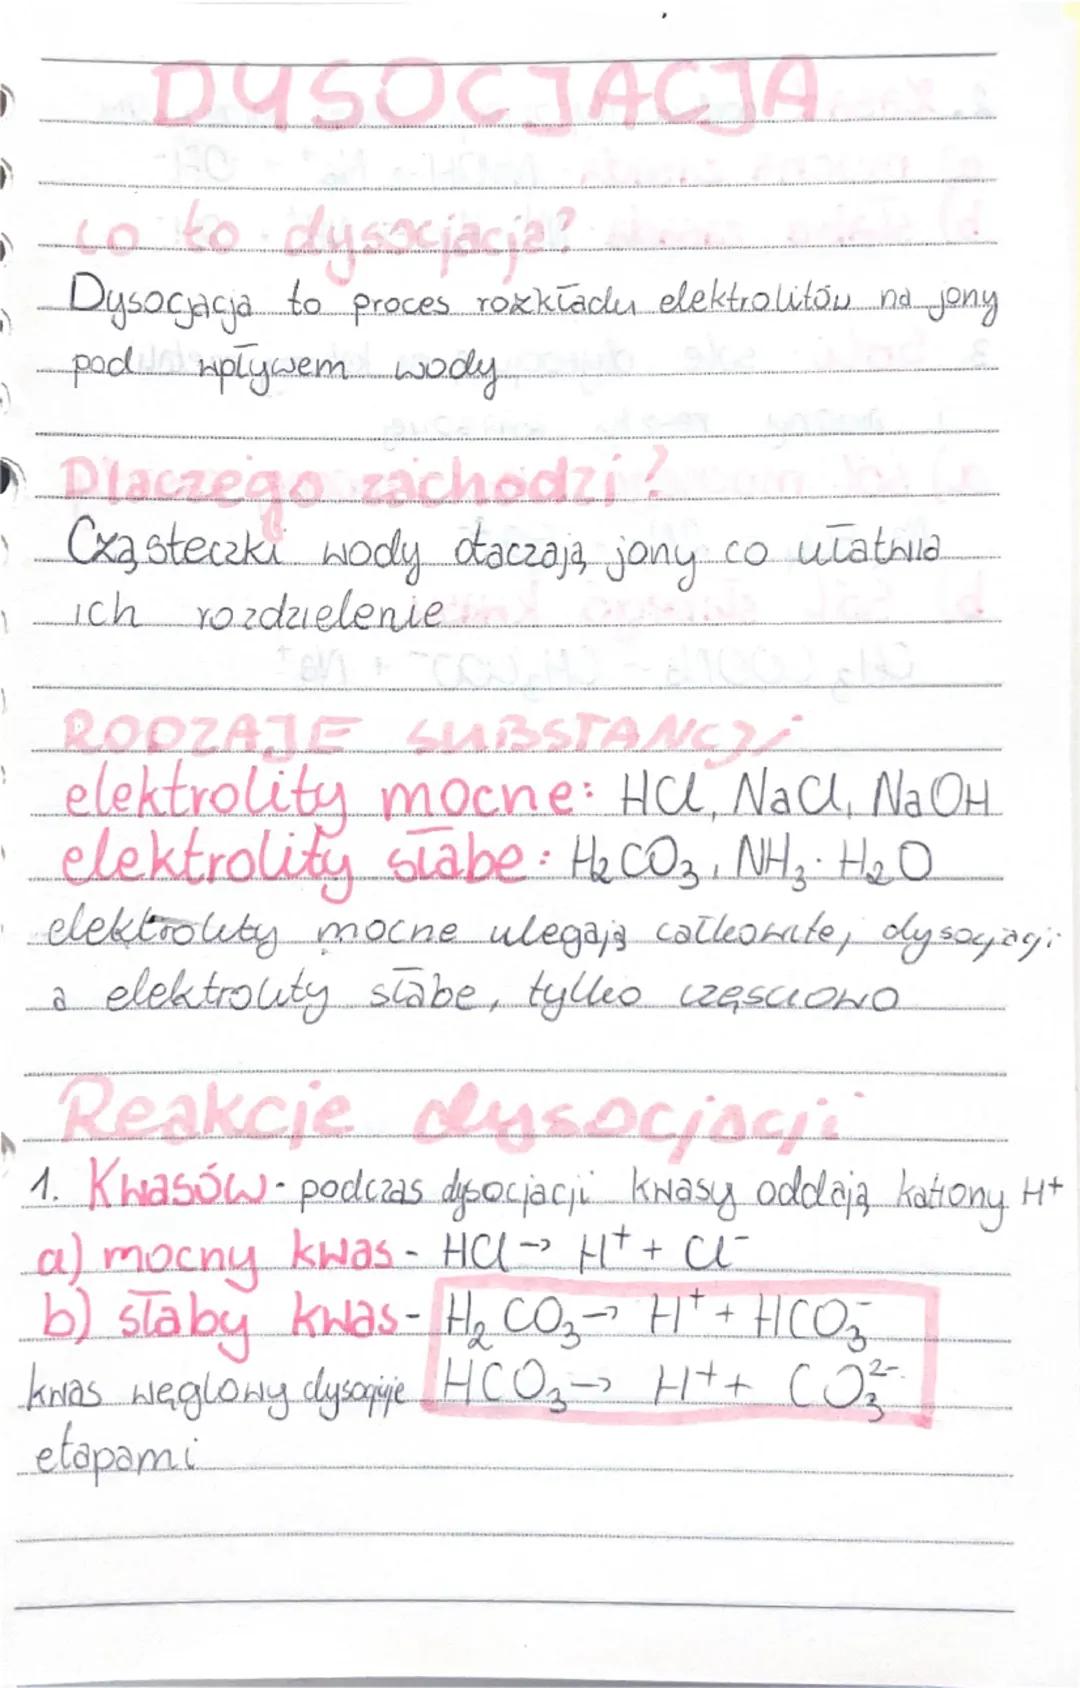 DYSOCJACJA
co to dysocjacja?
Dysocjacja to proces rozkładu elektrolitów na jony
pod wpływem wody
Dlaczego zachodzi?
Cząsteczki wody otaczają jony co ułatwia
ich rozdzielenie
RODZAJE SUBSTANCJi
elektrolity mocne: HCl, NaCl, NaOH
elektrolity słabe: H₂CO₃, NH₃·H₂O
elektrolity mocne ulegają całkowite, dysocjacji
a elektrolity słabe, tylko częsciowo
Reakcje dysocjacji
1. Kwasów - podczas dysocjacji kwasy oddają kationy H⁺
a) mocny kwas - HCl → H⁺ + Cl⁻
b) słaby kwas - H₂CO₃ → H⁺ + HCO₃⁻
kwas węglowy dysocjuje HCO₃ → H⁺ + CO₃²⁻
etapami